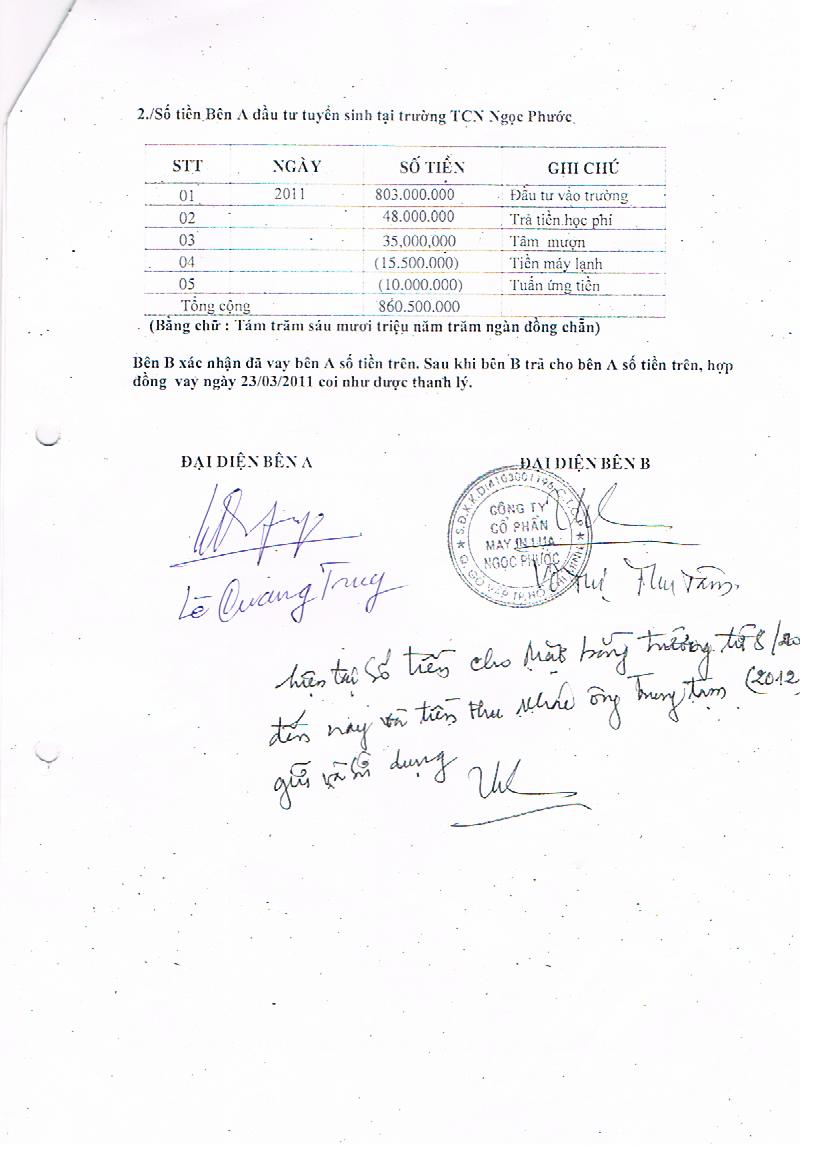 2./Số tiền Bên A đầu tư tuyển sinh tại trường TCN Ngọc Phước
STT NGÀY SỐ TIỀN GHI CHÚ
01 2011 803.000.000 Đầu tư vào trường
02 48.000.000 Trả tiền học phí
03 35,000,000 Tâm mượn
04 (15.500.000) Tiền máy lạnh
05 (10.000.000) Tuấn ứng tiền
Tổng cộng 860.500.000
(Bằng chữ : Tám trăm sáu mươi triệu năm trăm ngàn đồng chẵn)
Bên B xác nhận đã vay bên A số tiền trên. Sau khi bên B trả cho bên A số tiền trên, hợp
đồng vay ngày 23/03/2011 coi như được thanh lý.
ĐẠI DIỆN BÊN A ĐẠI DIỆN BÊN B
CÔNG TY
CỔ PHẦN
MAY IN LỤA
NGỌC PHƯỚC
Q. GÒ VẤP TP. HỒ CHÍ MINH
Lê Quang Trung Thị Thu Tâm.
hiện tại số tiền cho mặt bằng trường từ 8/20
đến nay và tiền thu khác ông Trung tạm (2012
giữ và sử dụng